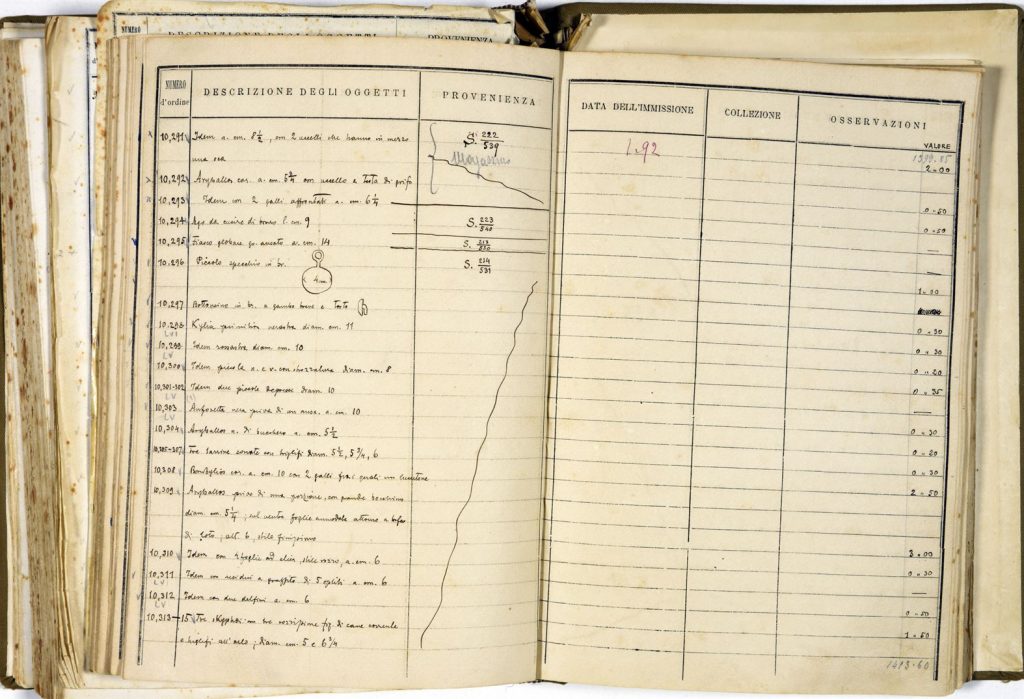 NUMERO
DESCRIZIONE DEGLI OGGETTI
PROVENIENZA
NUMERO d'ordine
DESCRIZIONE DEGLI OGGETTI
PROVENIENZA
DATA DELL'IMMISSIONE
COLLEZIONE
OSSERVAZIONI
VALORE
1.92
10,291 Idem a. cm. 8 1/2, con 2 uccelli che hanno in mezzo S. 222/539 2=00
una oca
10,292 Aryballos cor. a. cm. con uccello e testa di grifo 0=50
10,293 Idem con 2 galli affrontati a. cm. 6 1/4 0=50
10,294 Ago da cucire di bronzo l. cm. 9 S. 223/540
10,295 Fiasco globare a. cm. 14 S.
10,296 Piccolo specchio in br. S. 1=00
4 cm
10,297 Bottoncino in br. a gambo breve e
10,298 Kylix primitiva nerastra diam. cm. 11 0=30
LVI
10,299 Idem rossastra diam. cm. 10 0=30
LV
10,300 Idem piccola n. e v. con sbozzatura diam. cm. 8 0=20
10,301-302 Idem due piccole depresse diam. 10 0=35
LV
10,303 Anforetta nera priva di un ansa a. cm. 10
LV
10,304 Aryballos a. di bucchero a. cm. 5 1/2 0=30
10,305-307 Tre con triglifi diam. 5 1/2, 5 3/4, 6 0=20
10,308 Bombylios cor. a. cm. 10 con 2 galli fra i quali un 0=30
10,309 Aryballos privo di una porzione, con grande bocchino 2=50
diam. cm. 5 1/4; sul ventre foglie annodate attorno a
di loto; alt. 6, stile finissimo
10,310 Idem con 4 foglie ad elica, stile rozzo, a. cm. 6 3=00
10,311 Idem con residui a graffito di 5 opliti a. cm. 6 0=30
LV
10,312 Idem con due delfini a. cm. 6
LV
0=50
10,313-15 Tre skyphoi con tre rozzissime fig. di cane corrente 1=50
e triglifi all'orlo; diam. cm. 5 e 6 3/4
1413.60